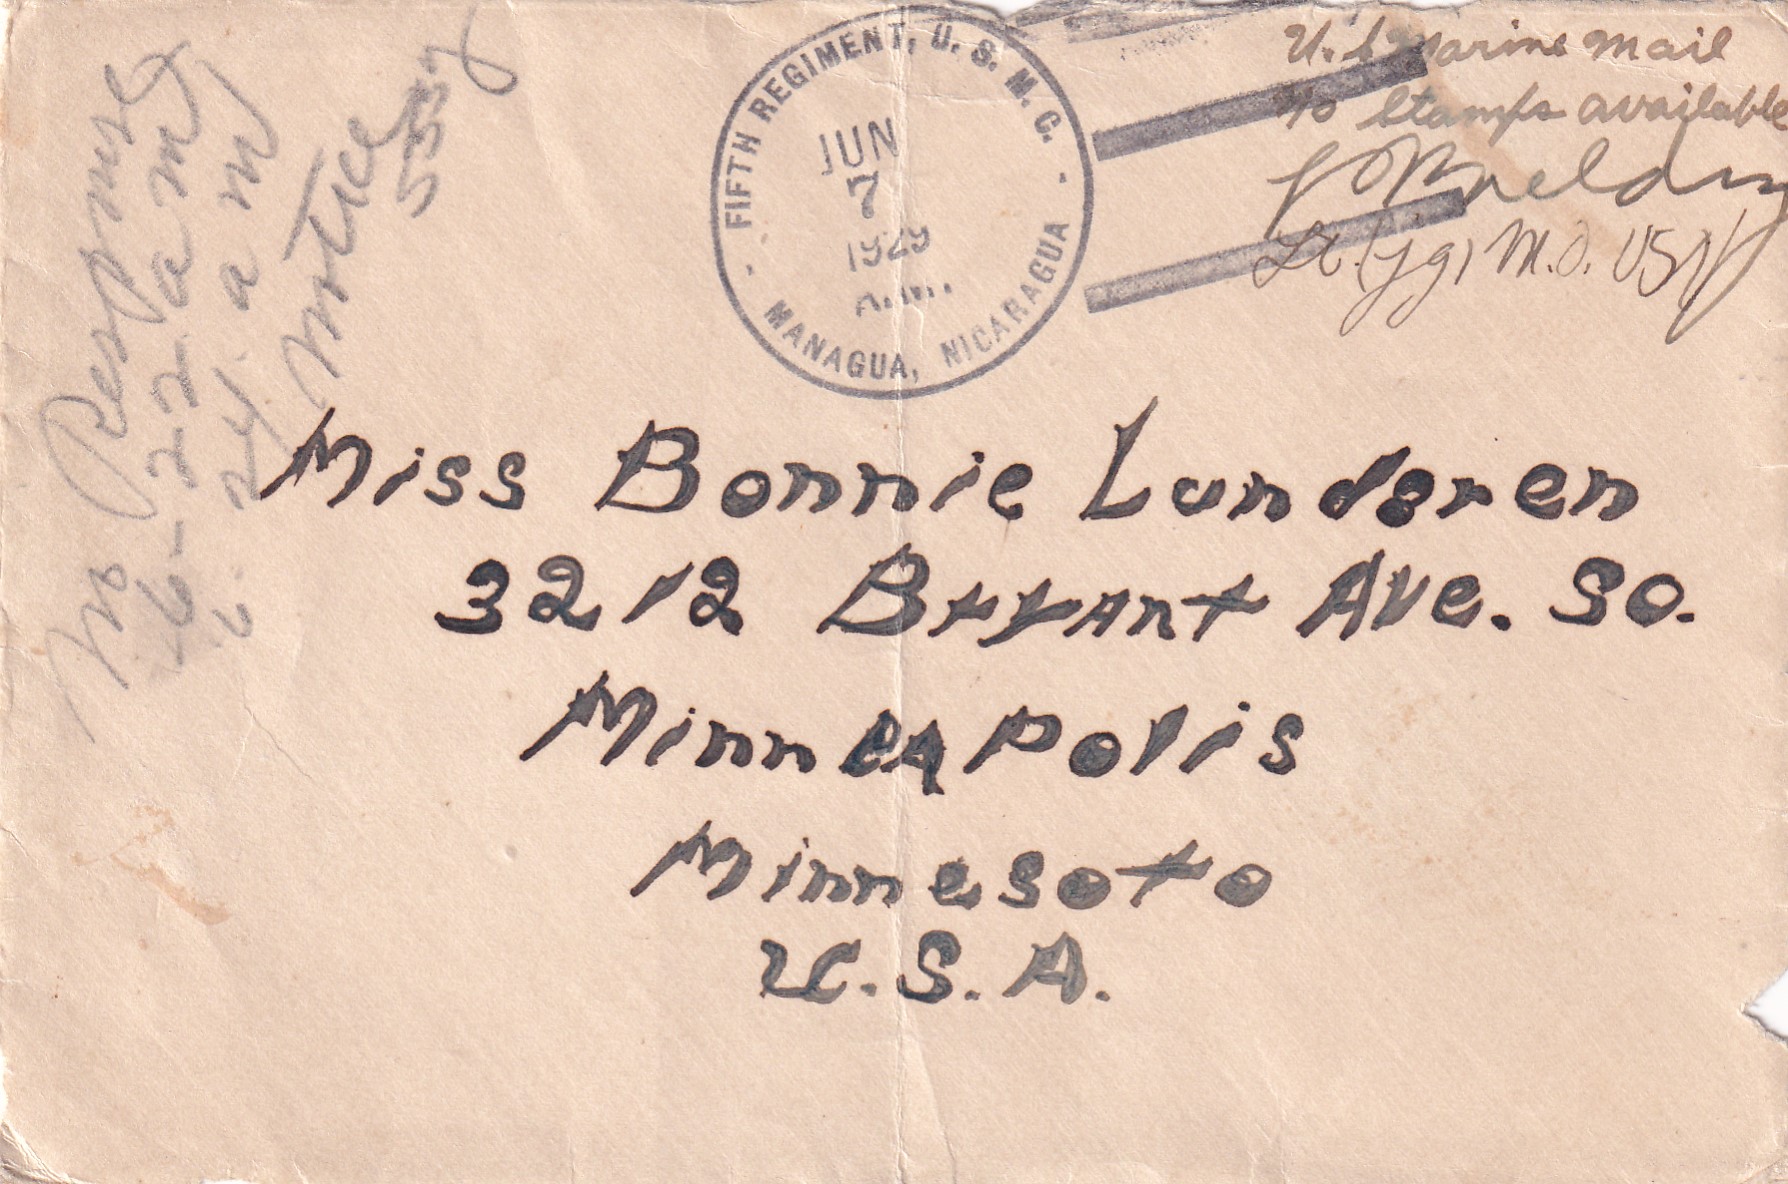 FIFTH REGIMENT, U. S. M. C.
JUN
7
1929
MANAGUA, NICARAGUA
U.S Marine Mail
No Stamps available
Lt. (jg) M.C. USN
Miss Bonnie Lundgren
3212 Bryant Ave. So.
Minneapolis
Minnesota
U.S.A.
No Response
6-22 am
" 24 am
notice